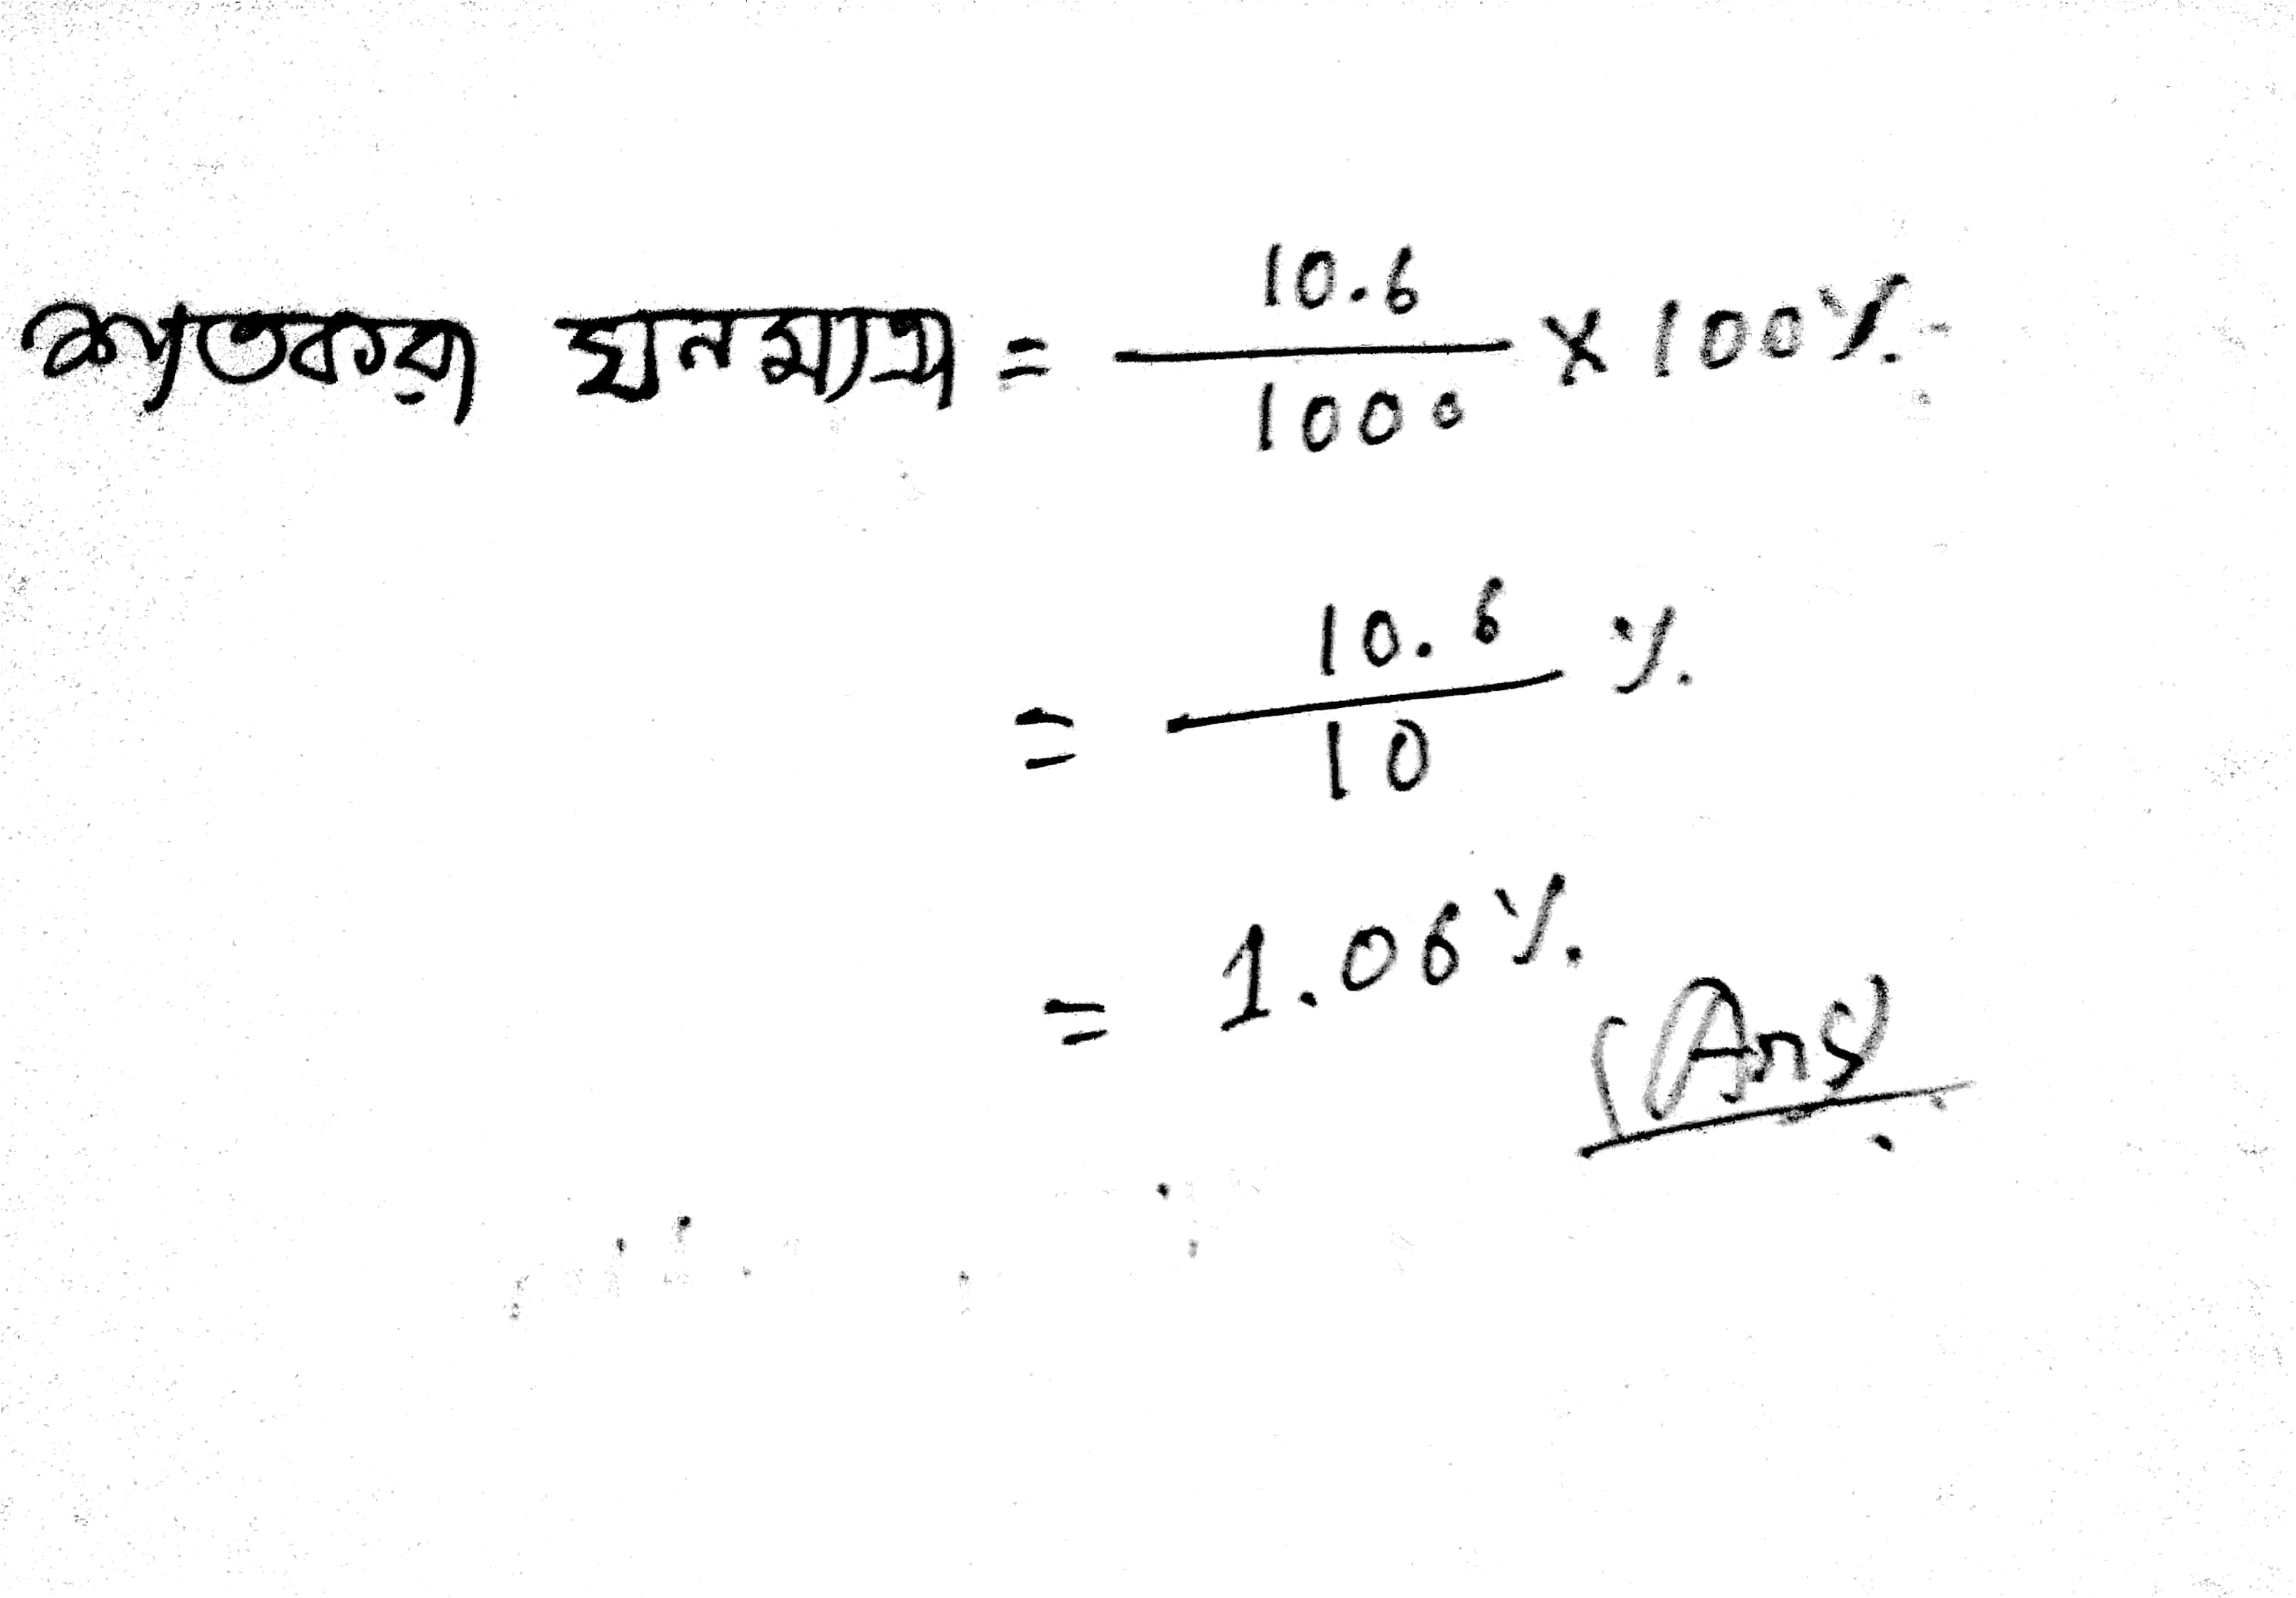 শতকরা ঘনমাত্রা = 10.6 / 1000 × 100%
= 10.6 / 10 %
= 1.06%
(Ans)